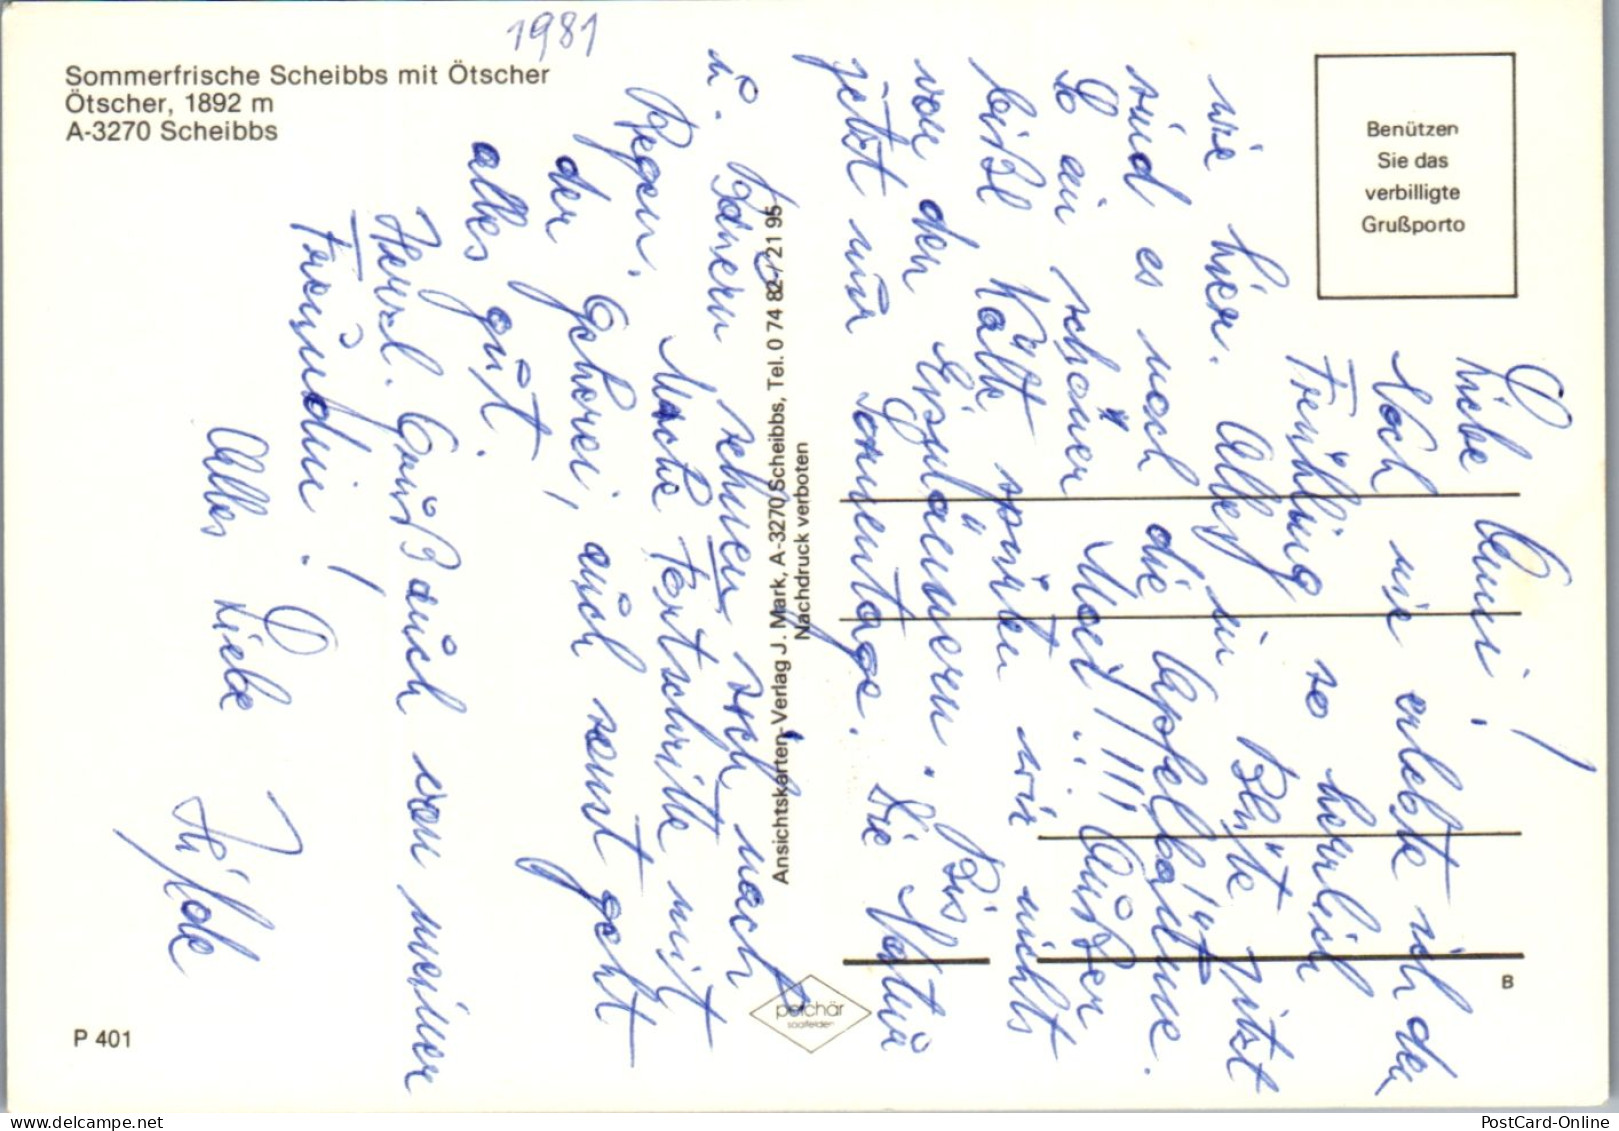 1981
Sommerfrische Scheibbs mit Ötscher
Ötscher, 1892 m
A-3270 Scheibbs
Benützen
Sie das
verbilligte
Grußporto
Liebe Anni!
Noch nie erlebte ich den
Frühling so herrlich
wie hier. Alles in Blüte jetzt
sind es noch die Apfelbäume.
So ein schöner Mai!!!! Außer
bißl Kälte spürten wir nichts
von den Eismännern. Bis
jetzt nur Sonnentage. Die Natur
u. Bauern sehnen sich nach
Regen. Mache Fortschritte mit
der Geherei, auch sonst geht
alles gut.
Herzl. Gruß auch von meiner
Freundin!
Alles Liebe
Hilde
Ansichtskarten-Verlag J. Mark, A-3270 Scheibbs, Tel. 0 74 82 / 21 95
Nachdruck verboten
perchär
saalfelden
P 401
B
PostCard-Online